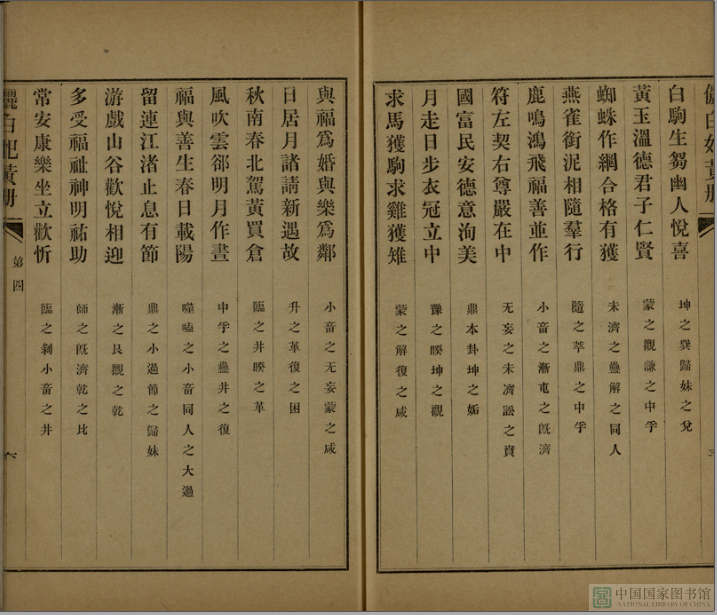 白駒生芻幽人悅喜 坤之巽歸妹之兌
黃玉溫德君子仁賢 蒙之觀謙之中孚
蜘蛛作網合格有獲 未濟之蠱解之同人
燕雀銜泥相隨羣行 隨之萃鼎之中孚
鹿鳴鴻飛福善並作 小畜之漸屯之旣濟
符左契右尊嚴在中 无妄之未濟訟之賁
國富民安德意洵美 鼎本卦坤之姤
月走日步衣冠立中 豫之睽坤之觀
求馬獲駒求雞獲雉 蒙之解復之咸
與福爲婚與樂爲鄰 小畜之无妄蒙之咸
日居月諸請新遇故 升之革復之困
秋南春北駕黃買倉 臨之井睽之革
風吹雲郤明月作晝 中孚之蠱井之復
福與善生春日載陽 噬嗑之小畜同人之大過
留連江渚止息有節 鼎之小過節之歸妹
游戲山谷歡悅相迎 漸之艮觀之乾
多受福祉神明祐助 師之旣濟乾之比
常安康樂坐立歡忻 臨之剝小畜之井
儷白妃黃册
第四
六
中国国家图书馆
NATIONAL LIBRARY OF CHINA